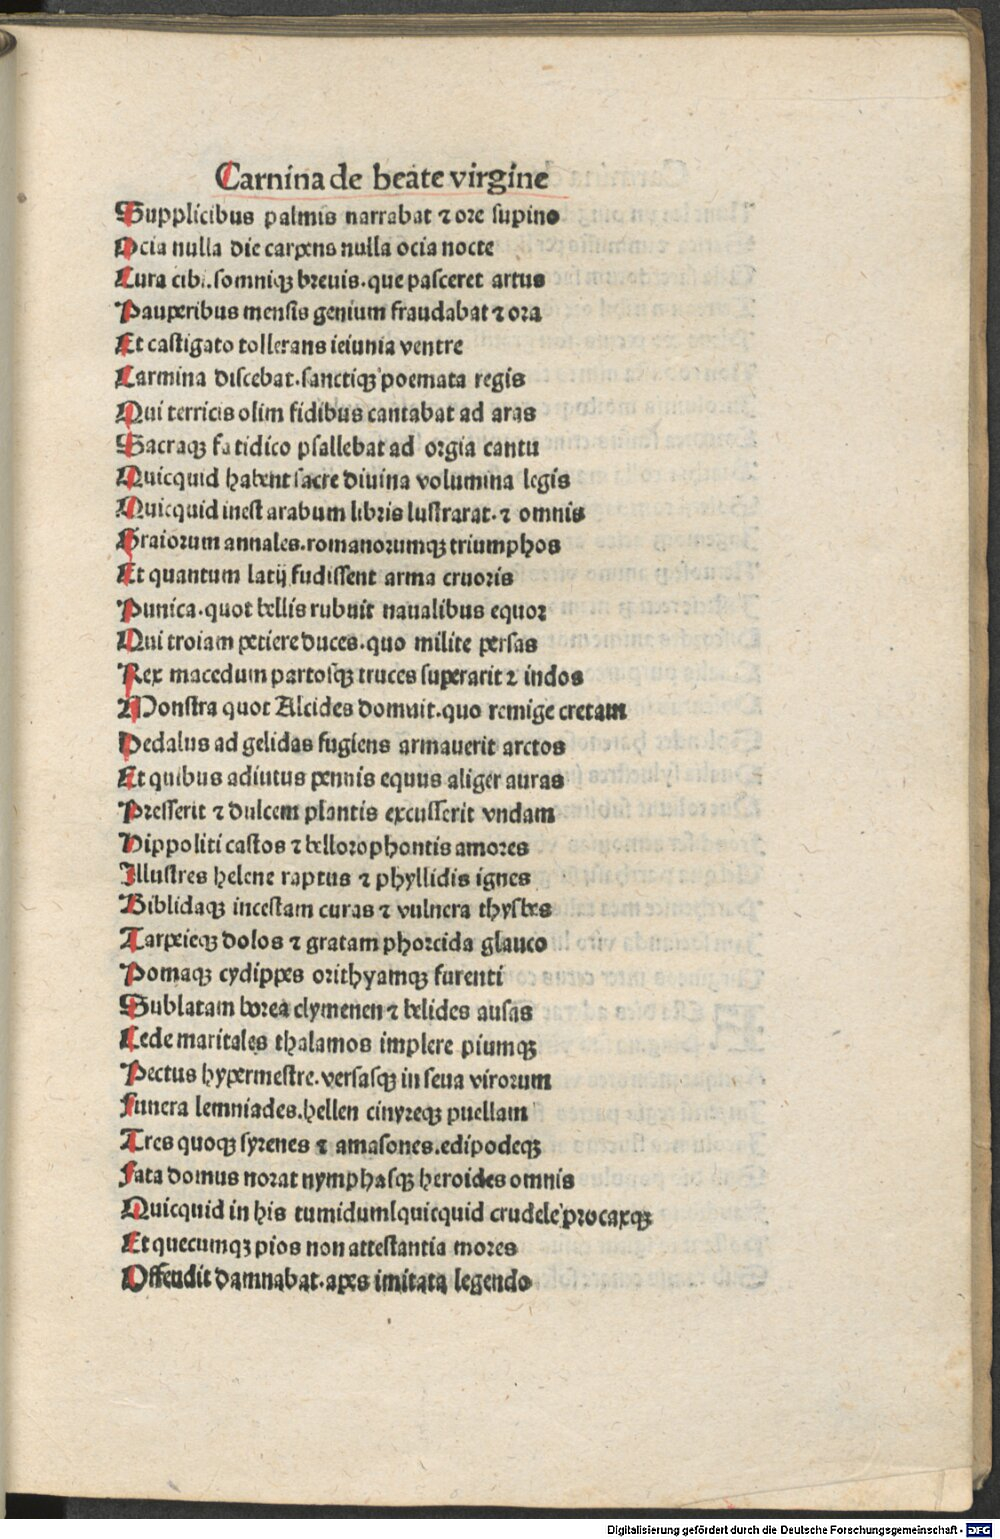 Carnina de beate virgine
Supplicibus palmis narrabat ⁊ ore supino
Ocia nulla die carpens nulla ocia nocte
Cura cibi.somniqꝫ brevis.que pasceret artus
Pauperibus mensis genium fraudabat ⁊ ora
Et castigato tollerans ieiunia ventre
Carmina discebat.sanctiqꝫ poemata regis
Qui terricis olim fidibus cantabat ad aras
Sacraqꝫ fatidico psallebat ad orgia cantu
Quicquid habent sacre divina volumina legis
Quicquid inest arabum libris lustrarat.⁊ omnis
Graiorum annales.romanorumqꝫ triumphos
Et quantum latij fudissent arma cruoris
Punica.quot bellis rubuit navalibus equor
Qui troiam petiere duces.quo milite persas
Rex macedum partosqꝫ truces superarit ⁊ indos
Monstra quot Alcides domuit.quo remige cretam
Dedalus ad gelidas fugiens armaverit arctos
Et quibus adiutus pennis equus aliger auras
Presserit ⁊ dulcem plantis excusserit vndam
Hippoliti castos ⁊ bellorophontis amores
Illustres helene raptus ⁊ phyllidis ignes
Biblidaqꝫ incestam curas ⁊ vulnera thysbes
Tarpeieqꝫ dolos ⁊ gratam phorcida glauco
Pomaqꝫ cydippes orithyamqꝫ furenti
Sublatam borea clymenen ⁊ belides ausas
Cede maritales thalamos implere piumqꝫ
Pectus hypermestre.versasqꝫ in seva virorum
Funera lemniades.hellen cinyreqꝫ puellam
Tres quoqꝫ syrenes ⁊ amasones.edipodeqꝫ
Fata domus norat nymphasqꝫ heroides omnis
Quicquid in his tumidum|quicquid crudele procaxqꝫ
Et quecumqꝫ pios non attestantia mores
Offendit damnabat.apes imitata legendo
Digitalisierung gefördert durch die Deutsche Forschungsgemeinschaft - DFG